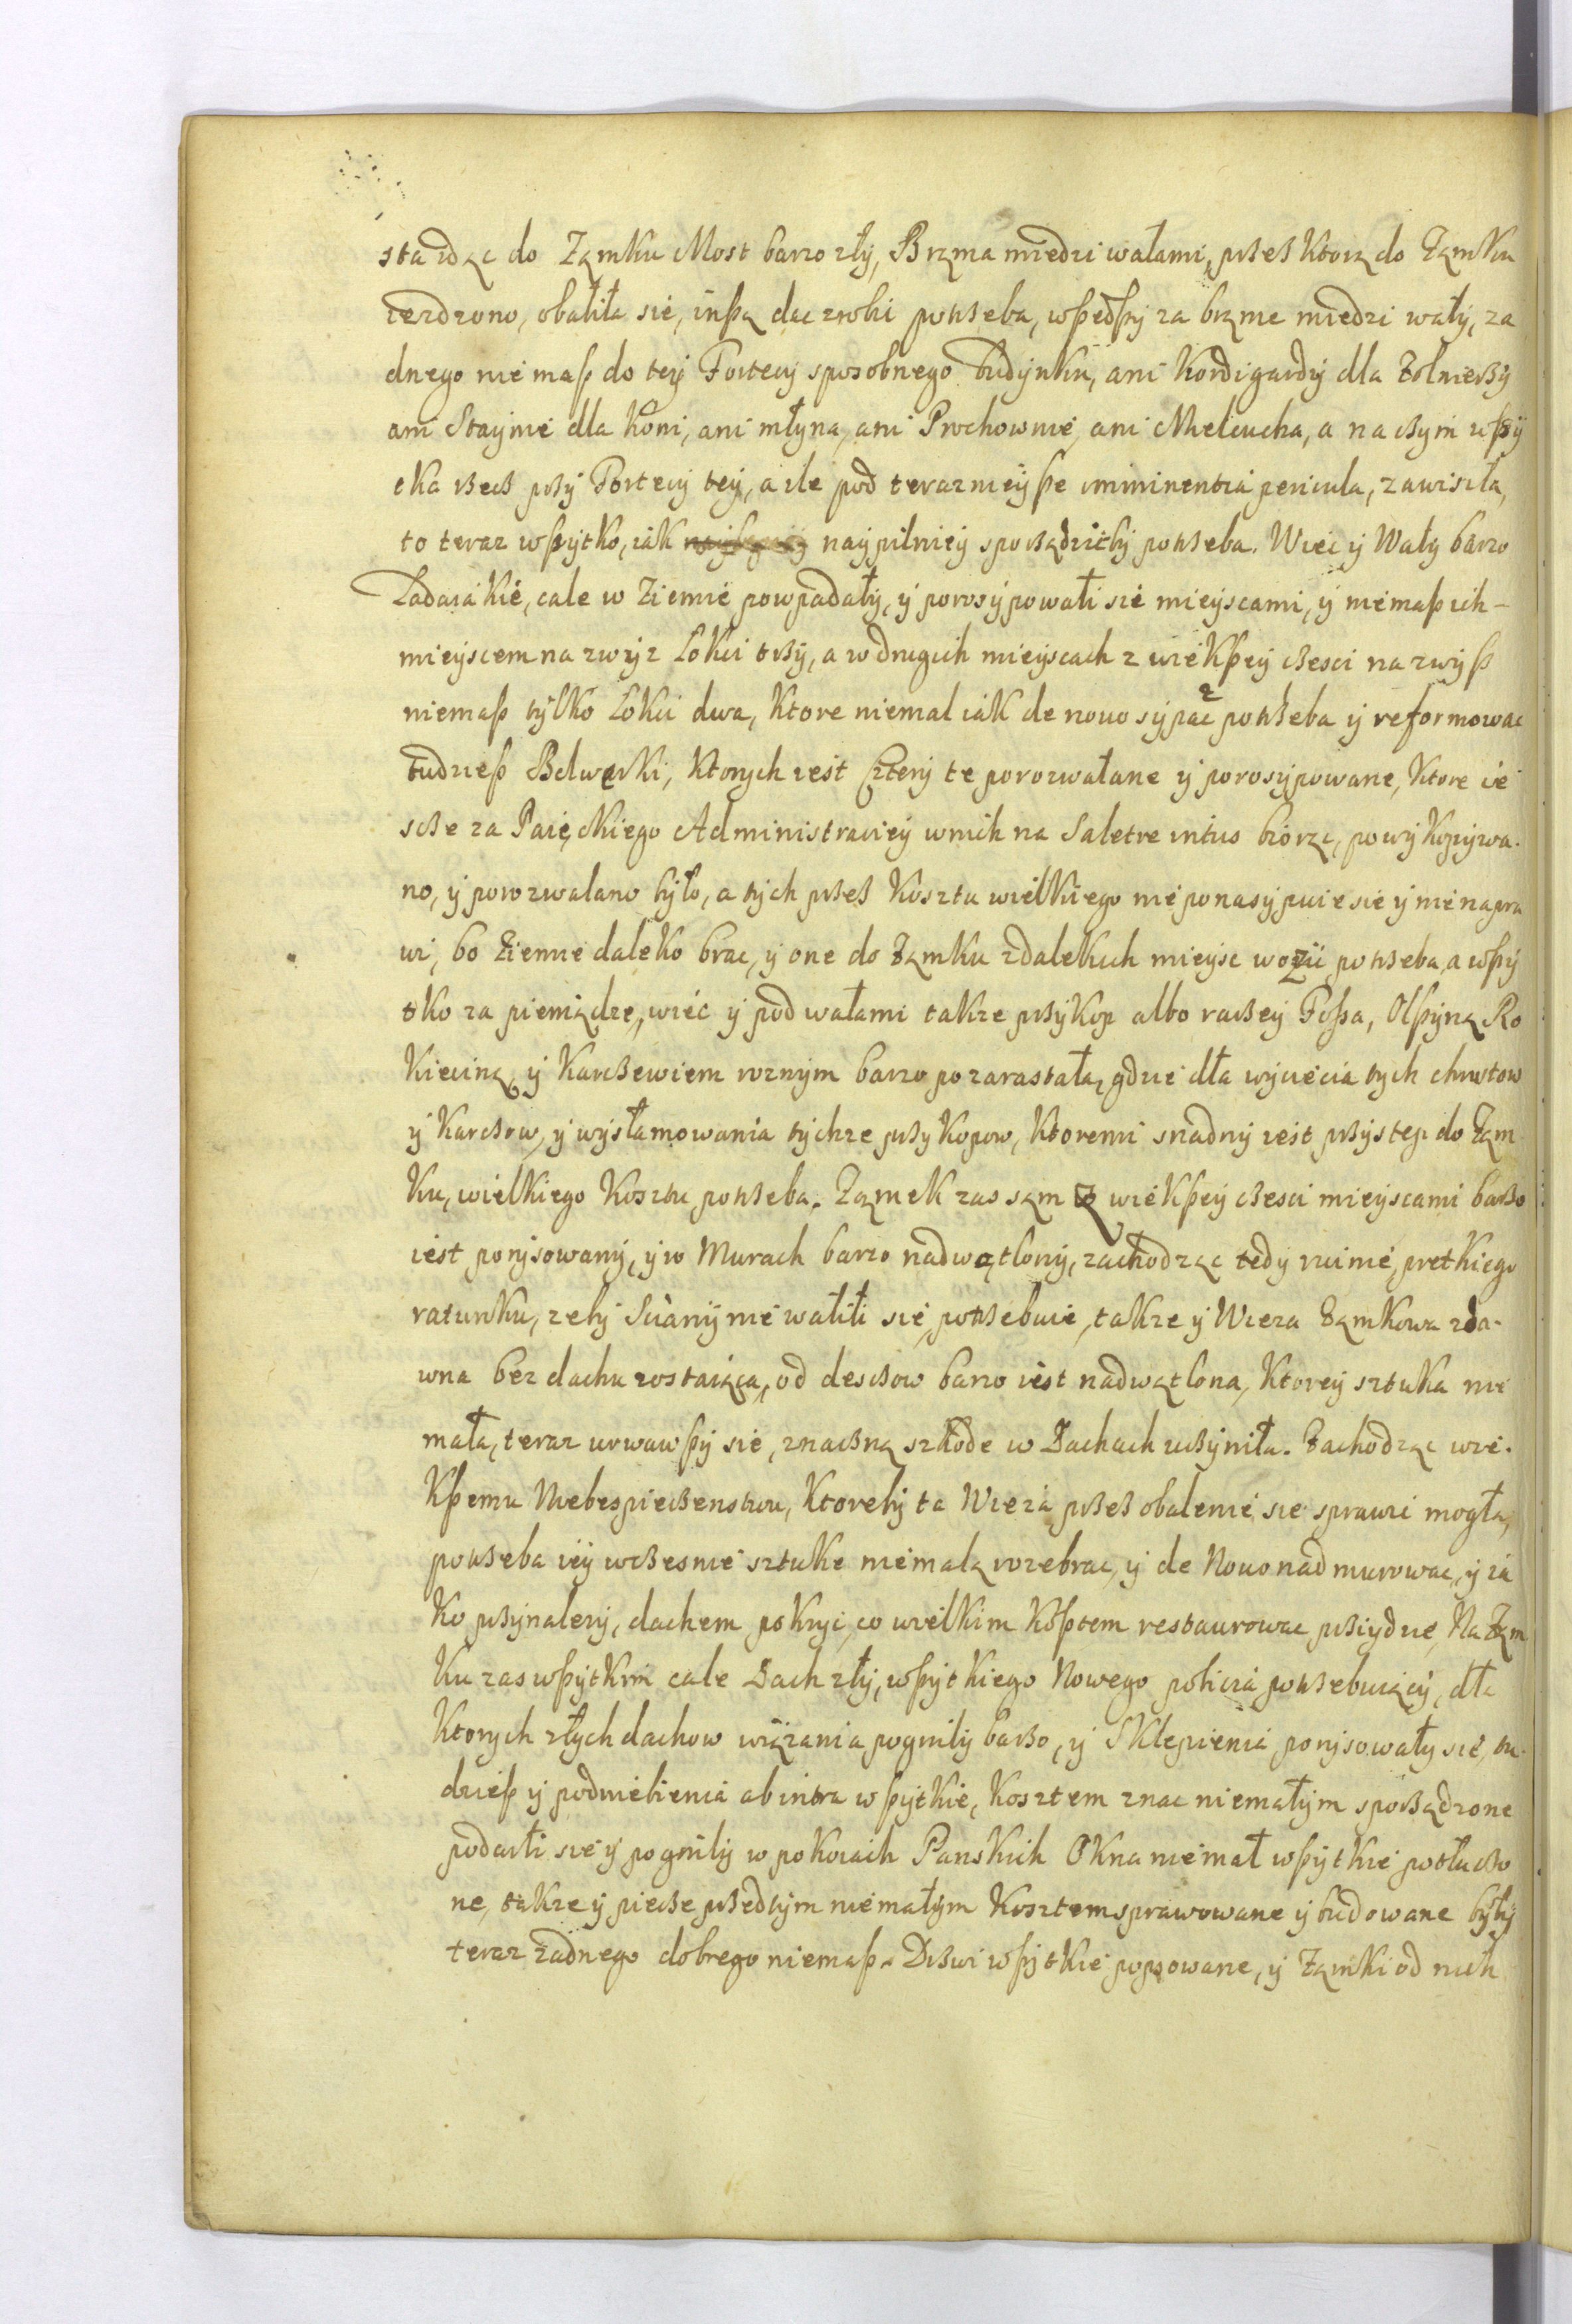 sta idąc do Zamku Most barzo zły, Brama miedzi wałami, przez ktorą do Zamku
iezdzono, obaliła sie, inszą dac zrobi potrzeba, wszedszy za brame miedzi wały, za
dnego nie masz do tey Fortecy sposobnego budynku, ani Kordigardy dla Zolnierzy
ani Staynie dla koni, ani młyna, ani Prochownie, ani Melcucha, a na czym wszy
tka rzecz przy Fortecy tey, a ile pod teraznieysze imminentia pericula, zawisła,
to teraz wszytko, iak naypilniey sporządziłby potrzeba. Wiec y Wały barzo
Ladaiakie, cale w Ziemie powpadały, y porosypowali sie mieyscami, y niemasz ich-
mieyscem na zwyz Lokci trzy, a w drugich mieyscach z wiekszey częsci na zwysz
niemasz tylko Lokci dwa, Ktore niemal iak de nouo sypac potrzeba y reformowac
tudziesz Belwarki, Ktorych iest Cztery te porozwałane y porosypowane, Ktore ie
scze za Paięckiego Administraciey w nich na Saletre intus biorąc, powykopywa-
no, y porozwalano było, a tych przez Kosztu wielkiego nie ponasypuie sie y nie napra
wi, bo Ziemie daleko brac, y one do Zamku zdalekich mieysc wozii potrzeba, a wszy
tko za pieniądze, wiec y pod wałami takze przykop albo raczey Fossa, Olszyną Ro
Kieciną y Karczewiem roznym barzo pozarastała, gdzie dla wyciecia tych chrostow
y Karczow, y wyszlamowania tychze przykopow, Ktoremi snadny iest przystep do Zam
Ku, wielkiego Kosztu potrzeba. Zamek zas sam z wiekszey częsci mieyscami barzo
iest porysowany, y w Murach barzo nadwątlony, zachodząc tedy ruinie, pretkiego
ratunku, zeby Sciany nie walili sie, potrzebuie, takze y Wieza Zamkowa zda-
wna bez dachu zostaiąca, od desczow barzo iest nadwątlona, Ktorey sztuka nie
mała, teraz urwawszy sie, znaczną szkode w Dachach uczyniła. Zachodząc wie-
Kszemu Niebespieczenstwu, Ktoreby ta Wieza przez obalenie sie sprawic mogła,
potrzeba iey wczesnie sztuke niemałą rozebrac, y de Nouo nadmurowac, y ia
Ko przynalezy, dachem pokryc, co wielkim Kosztem restaurowac przyidzie, Na Zam
Ku zas wszytkim cale Dach zły, wszytkiego Nowego pobicia potrzebuiący, dla
Ktorych złych dachow wiązania pogniły barzo, y Sklepienia porysowały sie, tu-
dziesz y podniebienia ab intra wszytkie, Kosztem znac niemałym sporządzone
podarli sie y pogniły w pokoiach Panskich Okna niemal wszytkie potłuczo
ne, takze y piecze przedtym niemałym Kosztem sprawowane y budowane były
teraz zadnego dobrego niemasz. Drzwi wszytkie popsowane, y Zamki od nich